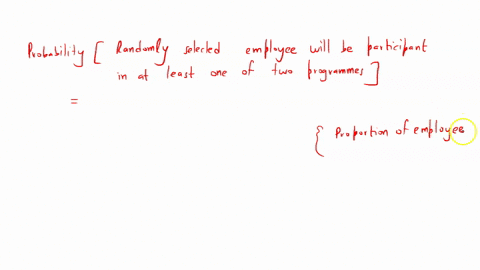 Probability [ Randomly selected employee will be participant
in at least one of two programmes ]
=
{ Proportion of employees